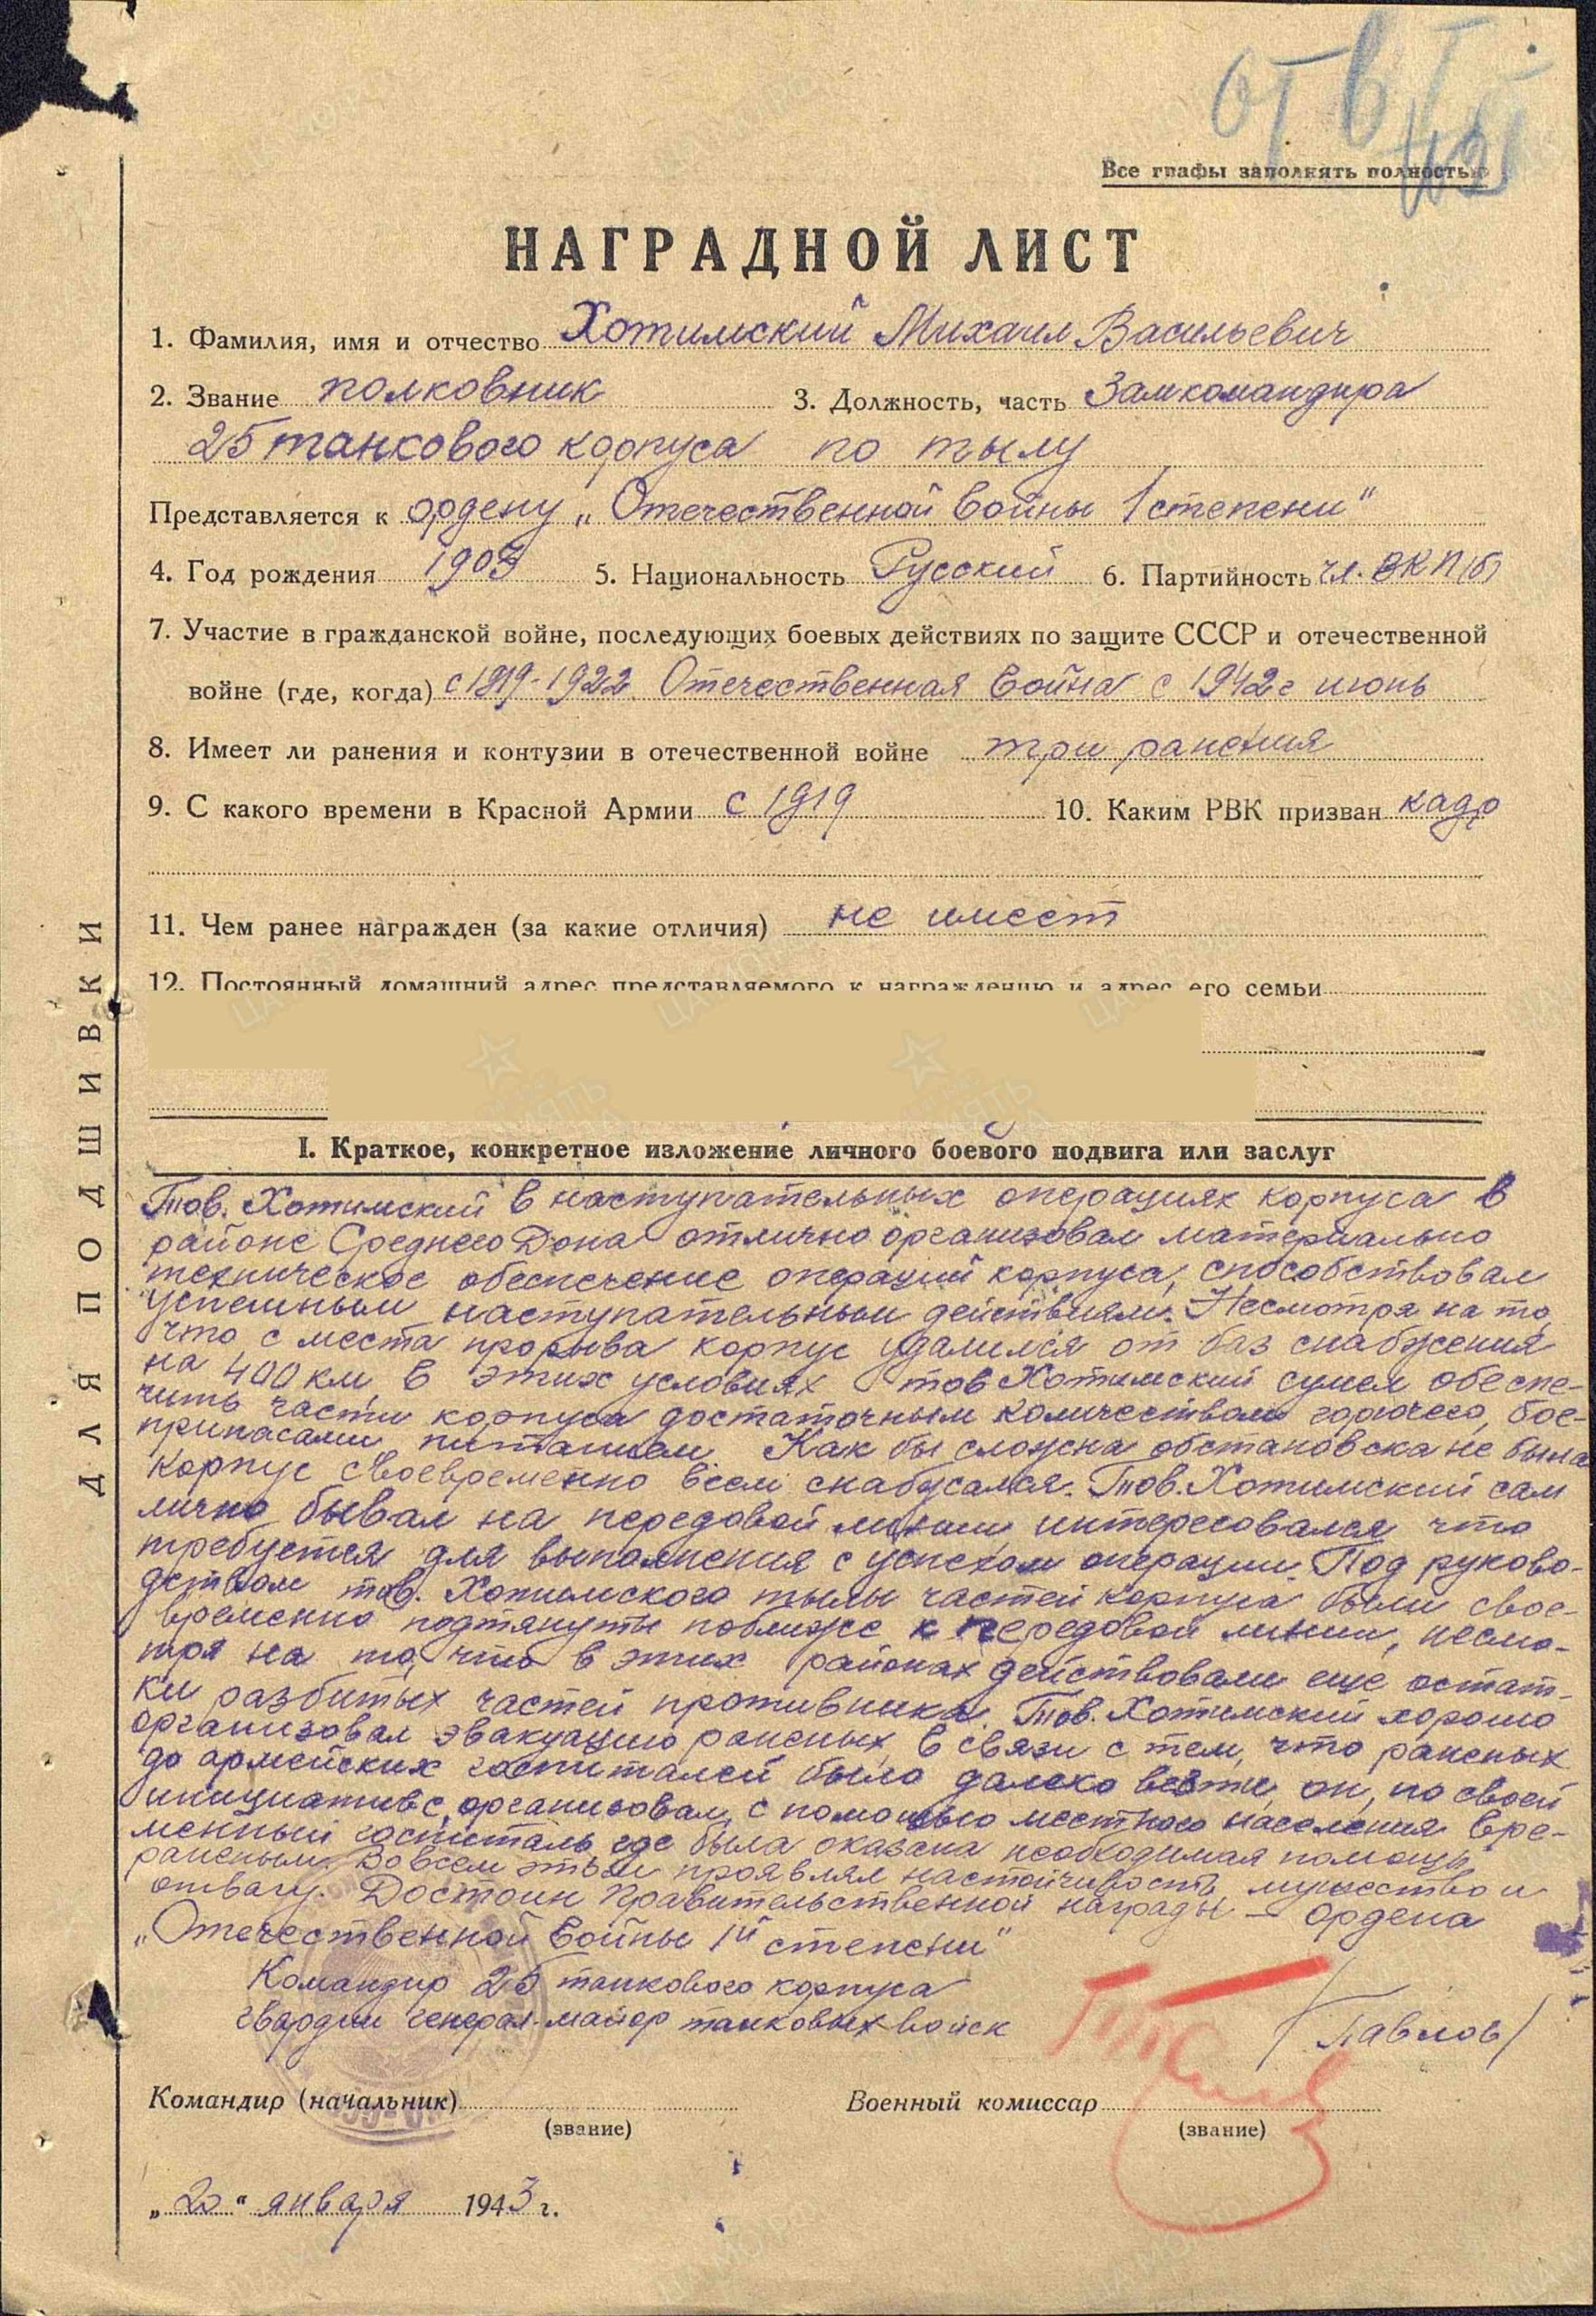 ОТВ I
Все графы заполнять полностью
НАГРАДНОЙ ЛИСТ
1. Фамилия, имя и отчество Хотимский Михаил Васильевич
2. Звание полковник 3. Должность, часть Замкомандира
25 танкового корпуса по тылу
Представляется к ордену „Отечественной войны 1 степени"
4. Год рождения 1903 5. Национальность Русский 6. Партийность чл. ВКП(б)
7. Участие в гражданской войне, последующих боевых действиях по защите СССР и отечественной
войне (где, когда) с 1919-1922 Отечественная война с 1942г июнь
8. Имеет ли ранения и контузии в отечественной войне три ранения
9. С какого времени в Красной Армии с 1919 10. Каким РВК призван кадр
11. Чем ранее награжден (за какие отличия) не имеет
12. Постоянный домашний адрес представляемого к награждению и адрес его семьи
I. Краткое, конкретное изложение личного боевого подвига или заслуг
Тов. Хотимский в наступательных операциях корпуса в
районе Среднего Дона отлично организовал материально
техническое обеспечение операций корпуса, способствовал
успешным наступательным действиям. Несмотря на то,
что с места прорыва корпус удалился от баз снабжения
на 400 км, в этих условиях тов Хотимский сумел обеспе-
чить части корпуса достаточным количеством горючего, бое-
припасами, питанием. Как бы сложна обстановка не была
корпус своевременно всем снабжался. Тов. Хотимский сам
лично бывал на передовой линии интересовался что
требуется для выполнения с успехом операции. Под руково-
дством тов. Хотимского тылы частей корпуса были свое-
временно подтянуты поближе к передовой линии, несмо-
тря на то, что в этих районах действовали еще остат-
ки разбитых частей противника. Тов. Хотимский хорошо
организовал эвакуацию раненых, в связи с тем, что раненых
до армейских госпиталей было далеко везти, он, по своей
инициативе, организовал, с помощью местного населения вре-
менный госпиталь, где была оказана необходимая помощь
раненым. Во всем этом проявлял настойчивость, мужество и
отвагу. Достоин Правительственной награды — ордена
„Отечественной войны 1й степени"
Командир 25 танкового корпуса
гвардии генерал-майор танковых войск /Павлов/
Командир (начальник) Военный комиссар
(звание) (звание)
„20" января 1943 г.
ДЛЯ ПОДШИВКИ